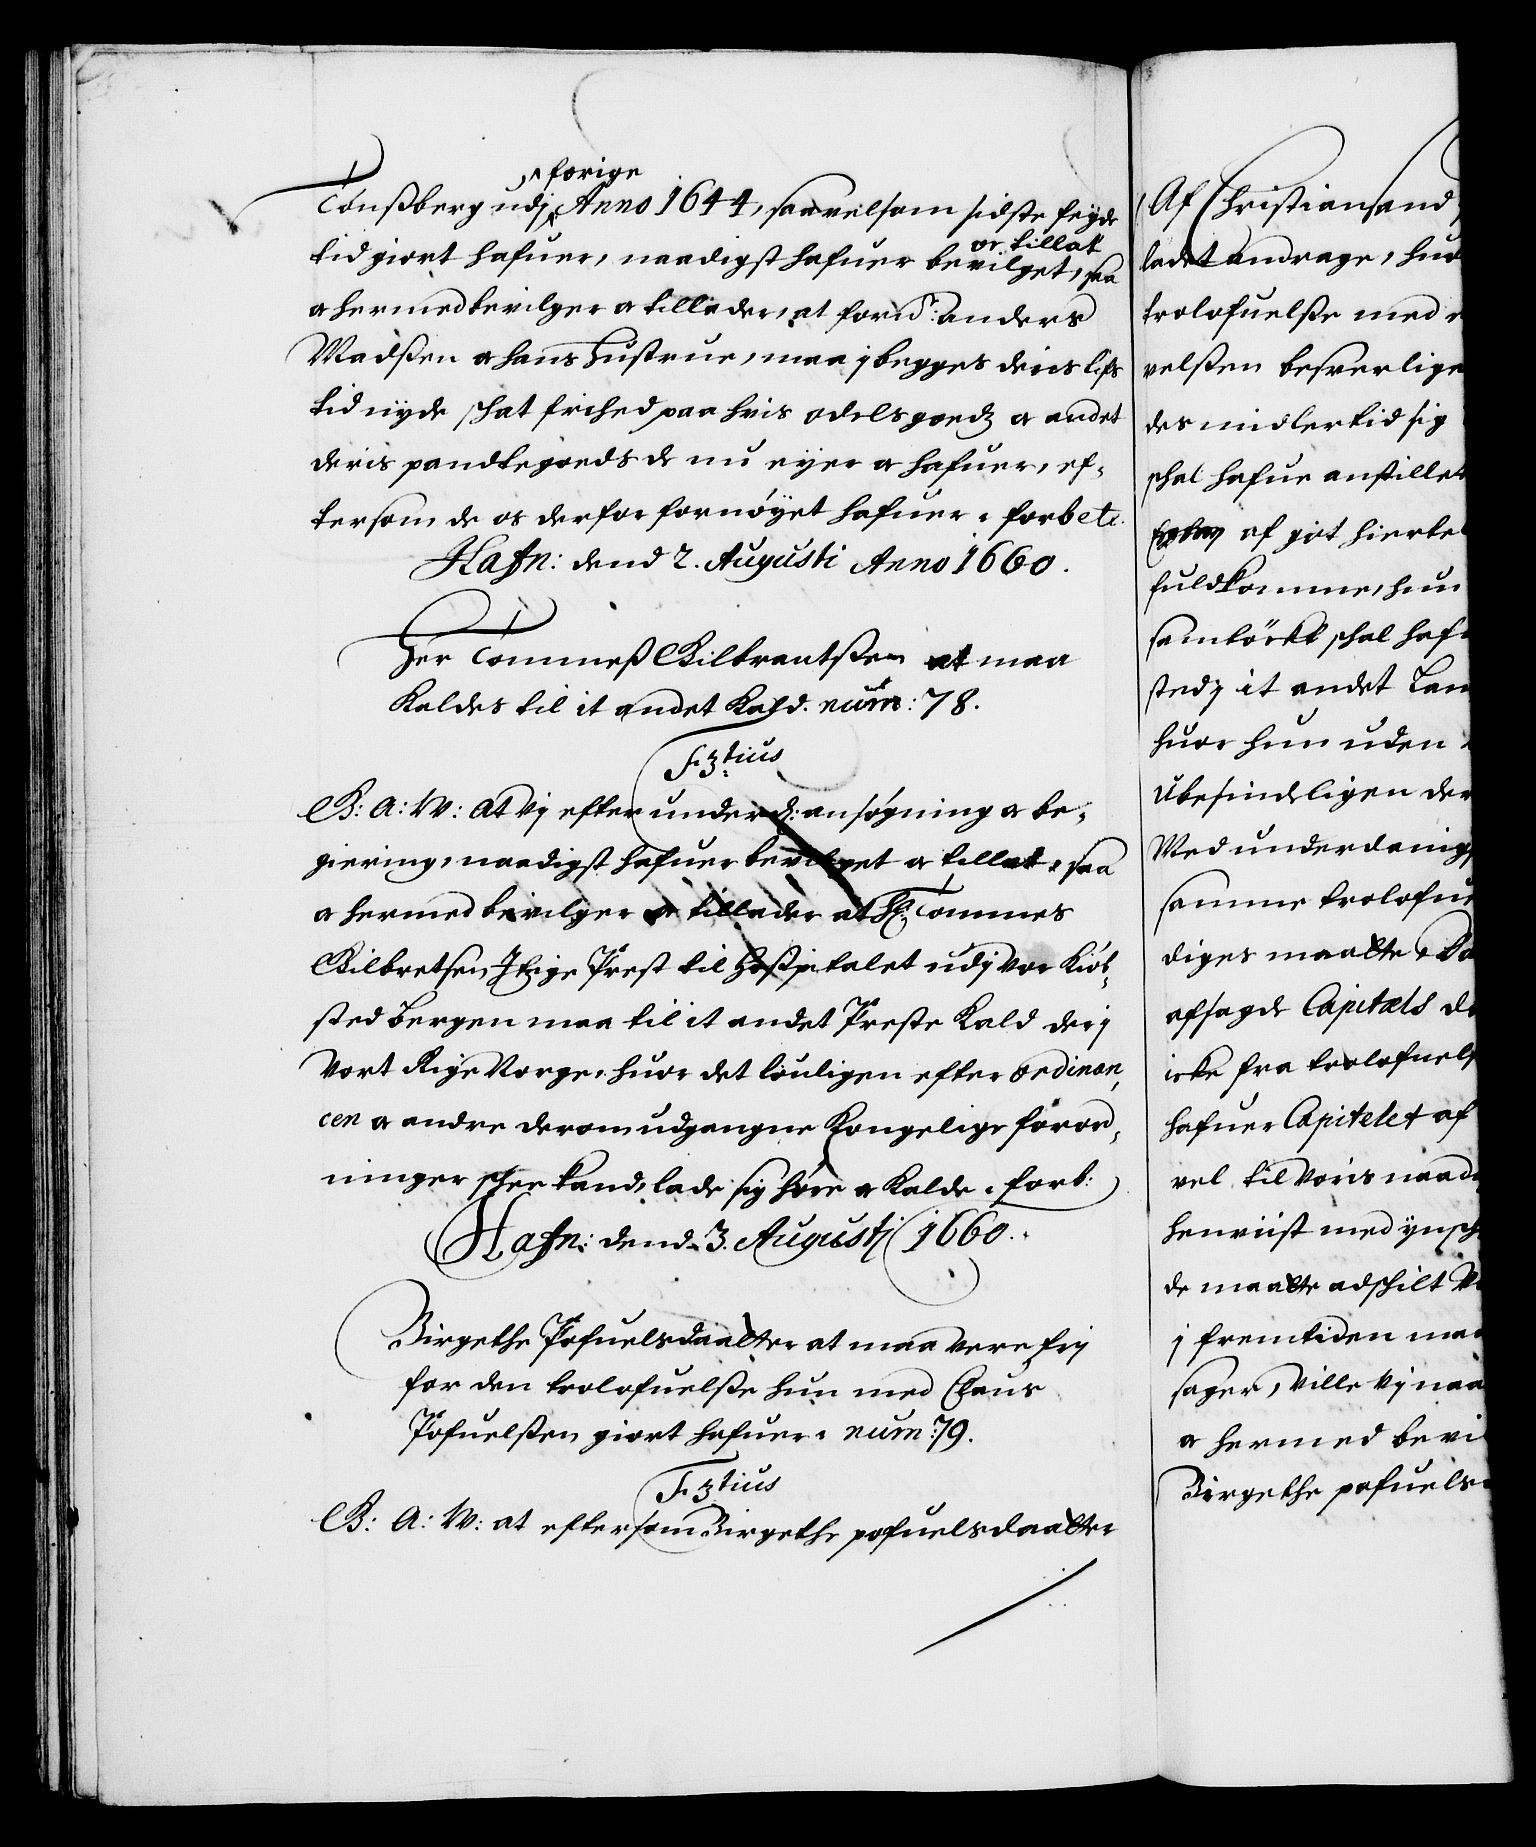 forige
Tønßberg udj Anno 1644, saavelsom sidste feyde
oc tillat
tid giort hafuer, naadigst hafuer bevilget, saa
oc hermed bevilger oc tillader, at fornd: Anders
Madßen oc hans Hustrue, maa j begges deris lifs
tid nyde schat frihed paa hvis odelsgoedz oc andet
deris pandtegoeds de nu eyer oc hafuer, ef-
tersom de os derfor fornøyet hafuer. forbetc.
Hafn: dend 2. Augusti Anno 1660.
Her Tommeß Gilbrantßen at maa
Kaldes til it andet Kald. num: 78.
F. 3tius
G: A: W: At Vj efter underd: ansøgning oc be-
giering, naadigst hafuer bevilget oc tillat, saa
oc hermed bevilger oc tillader at H: Tommes
Gilbretsen, Prest til Hospitalet udj vor Kiøb-
sted Bergen maa til it andet Preste Kald der j
Vort Rige Norge, huor det louligen efter ordinan-
cen oc andre derom udgangne Kongelige foror-
ninger schee kand, lade sig høre oc Kalde. forb:
Hafn: dend 3. Augustj 1660.
Birgethe Pofuelsdaatter at maa vere frj
for den trolofuelße hun med Claus
Pofuelßen giort hafuer. num: 79.
F. 3tius
G: A: W: at eftersom Birgethe pofuelsdaatter
Af Christiansand
ladet andrage, huor
trolofuelße med
velßen besverlige
des midlertid sig
schal hafue anstillet
af got hierte
fuldkomme, hun
samtøckt schal haf
sted j it andet Lan
huor hun uden
Ubesindeligen der
Med underdanigst
samme trolofue
diges maatte, Da
afsagde Capitæls
icke fra trolofuels
hafuer Capitelet af
vel til Voris naad
henviist med ynsch
de maatte adschilt
j fremtiden maa
sager, Ville Vj naa
oc hermed bevi
Birgethe pofuels